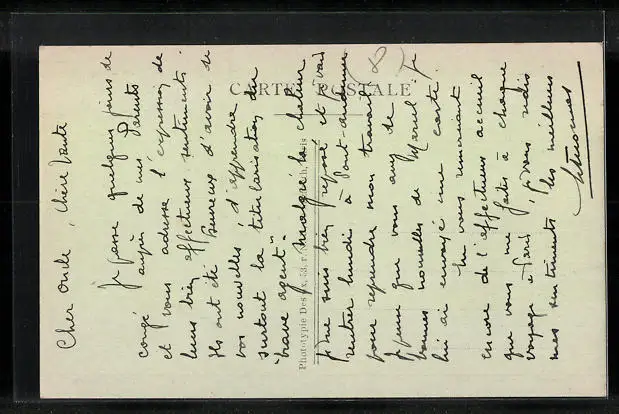 CARTE POSTALE
Phototypie Des x, 53, r Paris
Cher oncle, chère tante
Je passe quelques jours de
congé auprès de mes Parents
et vous adresse l'expression de
leurs bien affectueux sentiments.
Ils ont été heureux d'avoir de
vos nouvelles, d'apprendre
surtout la titularisation du
"brave agent".
Malgré la chaleur
je me suis bien reposé et je vais
rentrer lundi à Pont-audemer
pour reprendre mon travail.
Je pense que vous avez de
bonnes nouvelles de Marcel; je
lui ai envoyé une carte.
En vous remerciant
encore de l'affectueux accueil
que vous me faites à chaque
voyage à Paris, je vous redis
mes sentiments les meilleurs